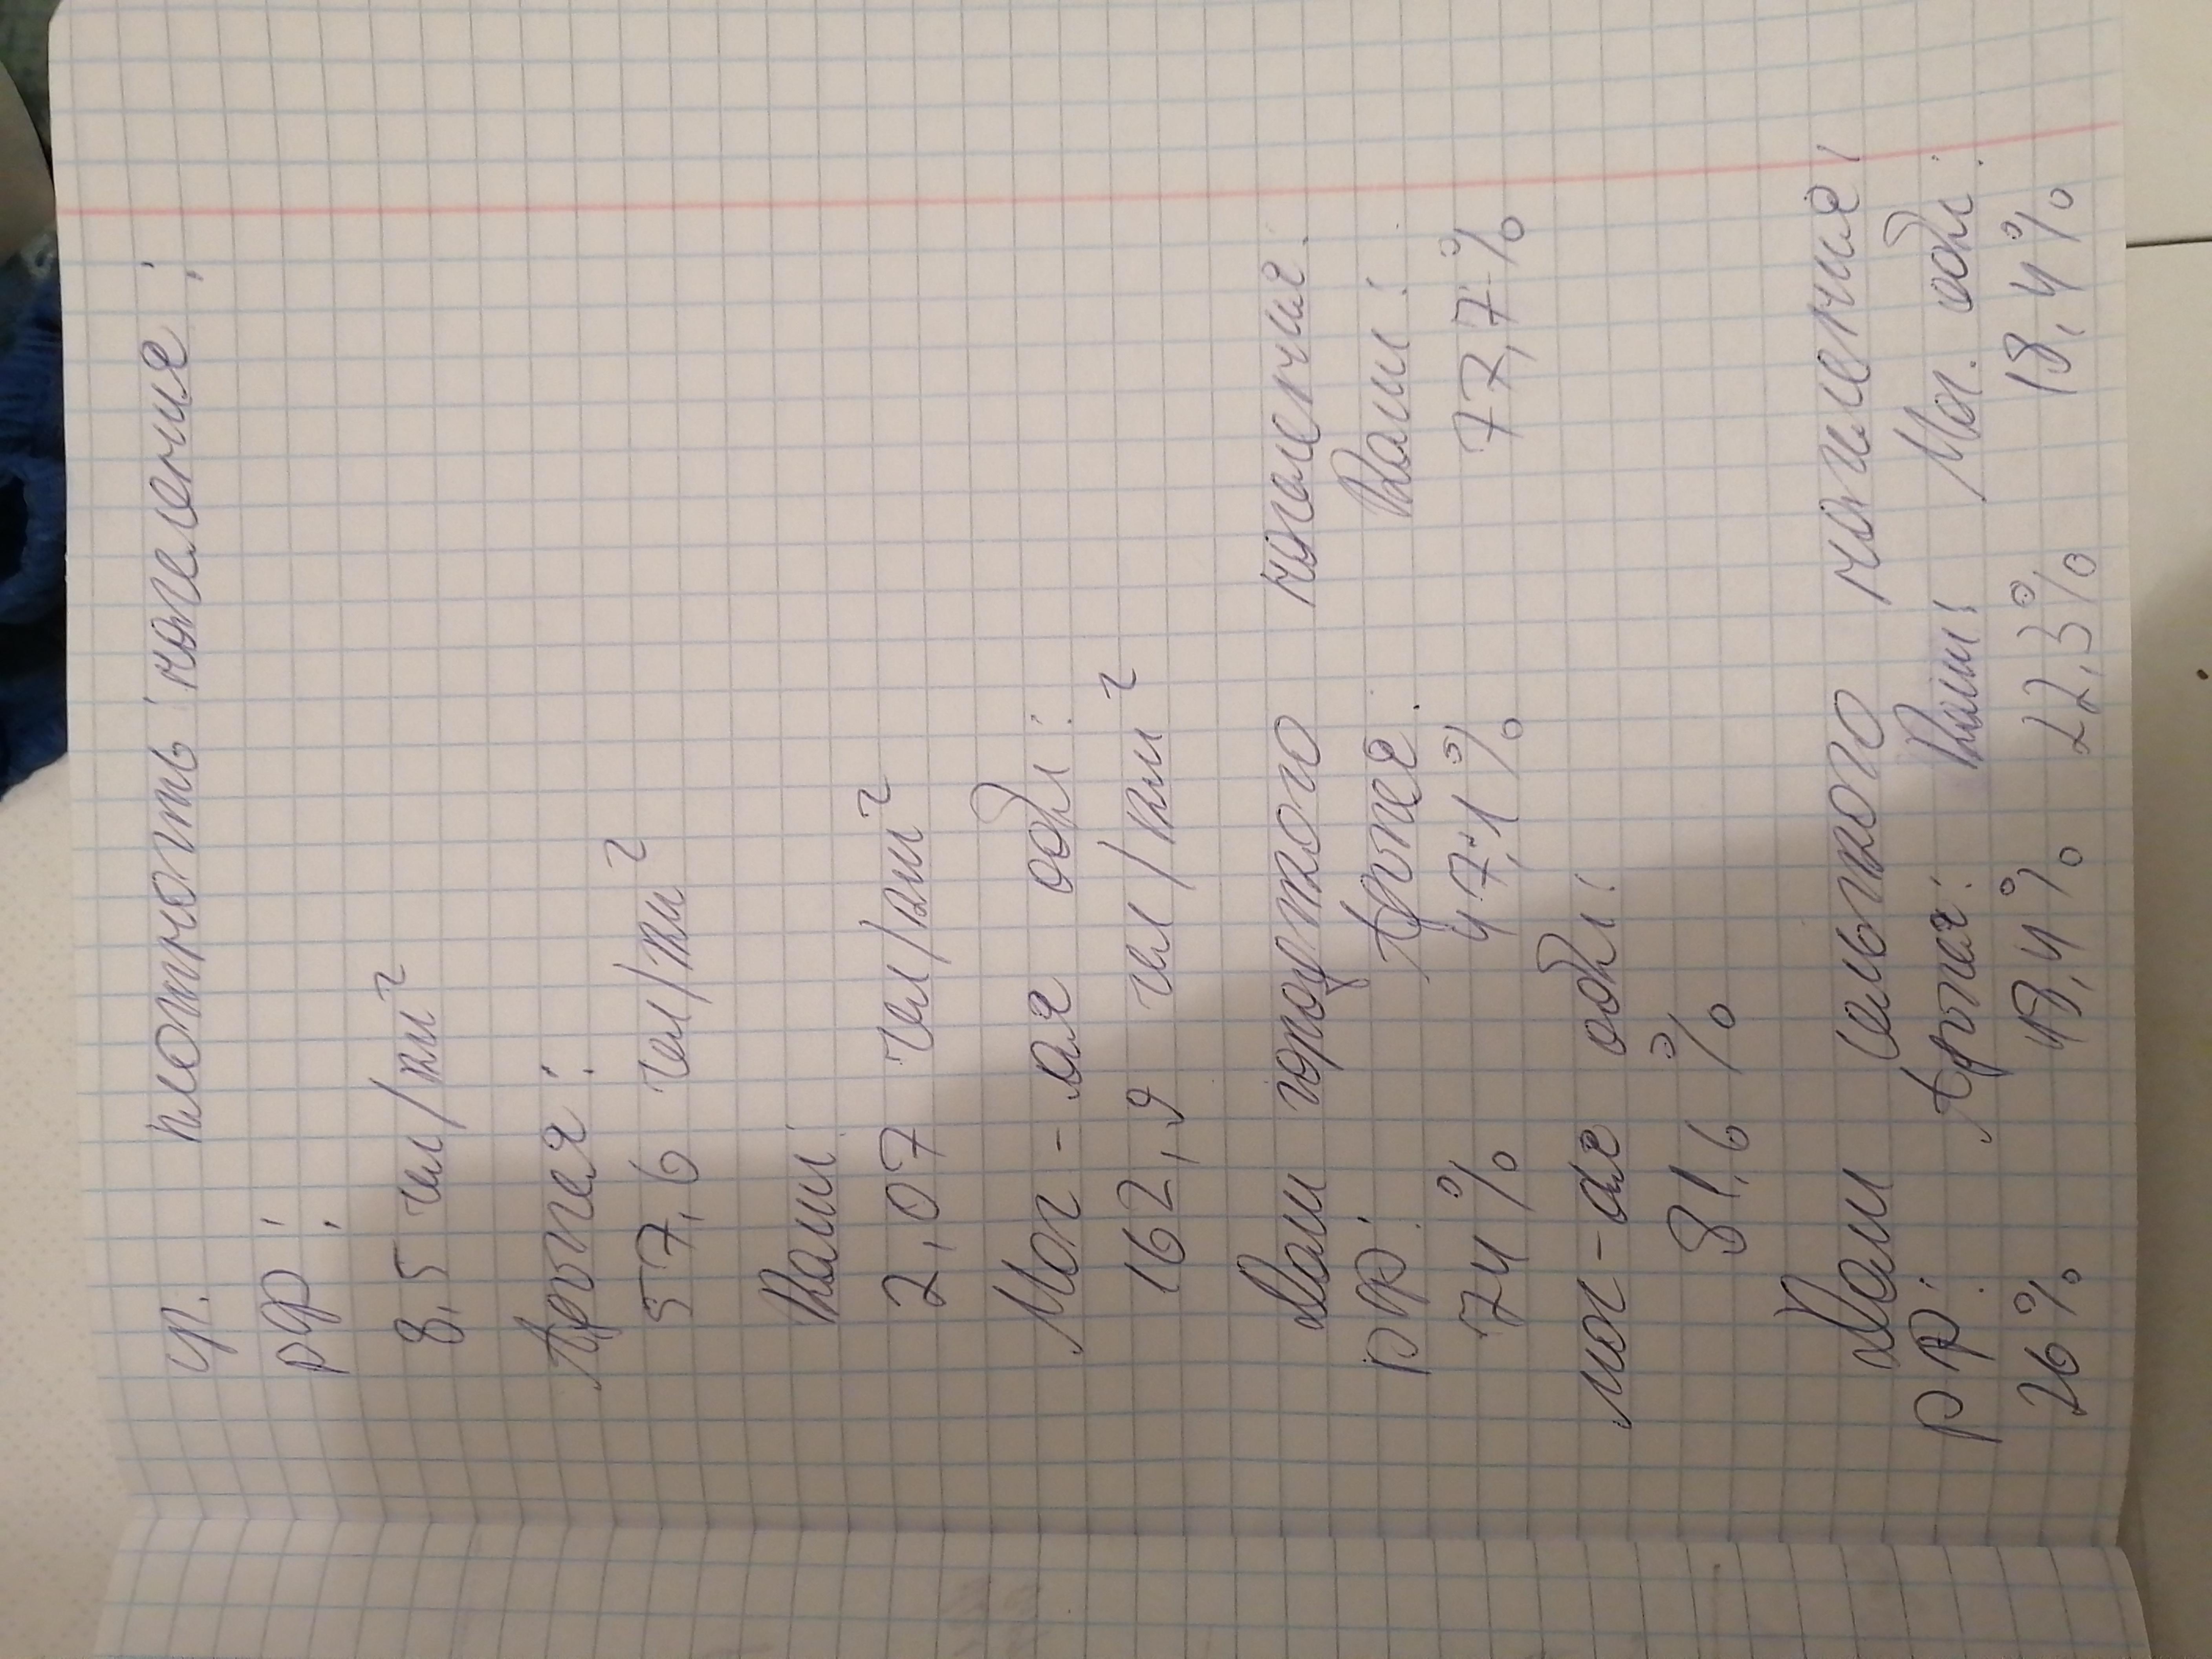 ср. плотность населения:
РФ:
8,5 чел/км²
Адыгея:
57,6 чел/км²
Коми
2,07 чел/км²
Мос-ая обл:
162,9 чел/км²
Доля городского населения:
РФ: Адыгея: Коми:
74% 47,1% 77,7%
мос-ая обл:
81,6%
Доля сельского населения:
РФ: Адыгея: Коми: Мос. обл:
26% 48,4% 22,3% 18,4%